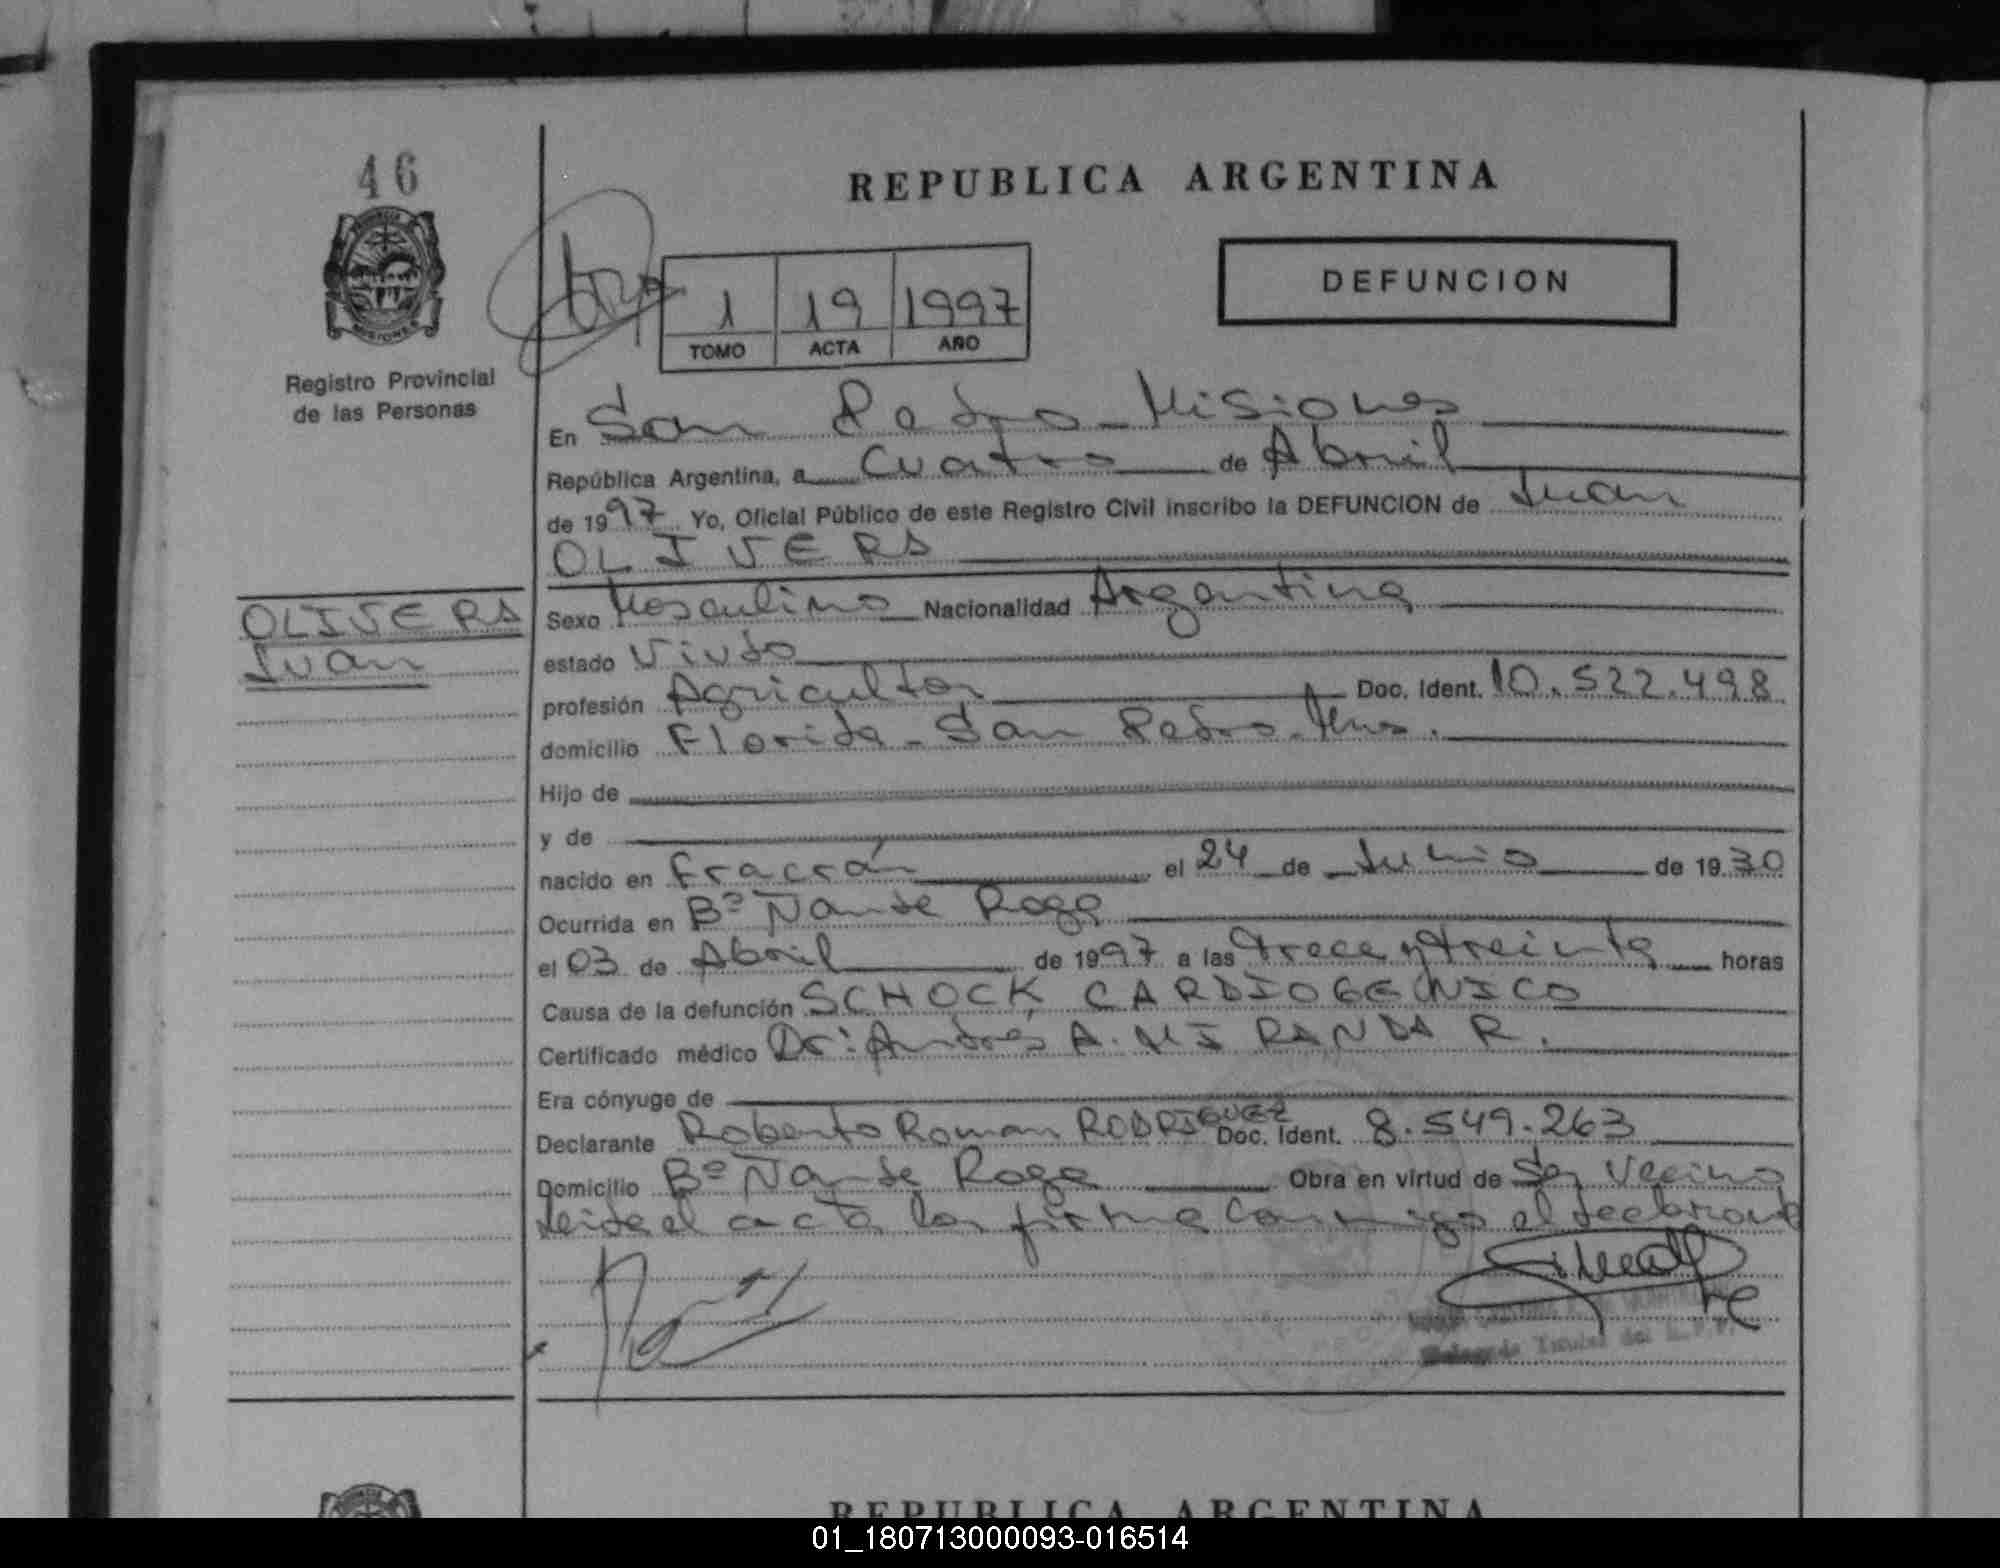 46
REPUBLICA ARGENTINA
DEFUNCION
1 19 1997
TOMO ACTA AÑO
MISIONES
Registro Provincial
de las Personas
En San Pedro - Misiones
República Argentina, a Cuatro de Abril
de 1997 Yo, Oficial Público de este Registro Civil inscribo la DEFUNCION de Juan
OLIVERA
OLIVERA
Juan
Sexo Masculino Nacionalidad Argentina
estado Viudo
profesión Agricultor Doc. Ident. 10.522.498
domicilio Florida - San Pedro - Mnes.
Hijo de
y de
nacido en Fracrán el 24 de Junio de 1930
Ocurrida en Bº Ñande Roga
el 03 de Abril de 1997 a las trece y treinta horas
Causa de la defunción SCHOCK CARDIOGENICO
Certificado médico Dr: Andrés A. MIRANDA R.
Era cónyuge de
Declarante Roberto Roman RODRIGUEZ Doc. Ident. 8.549.263
Domicilio Bº Ñande Roga Obra en virtud de Ser Vecino
Leida el acta la firma conmigo el declarante
Titular del R.P.P.
REPUBLICA ARGENTINA
01_180713000093-016514